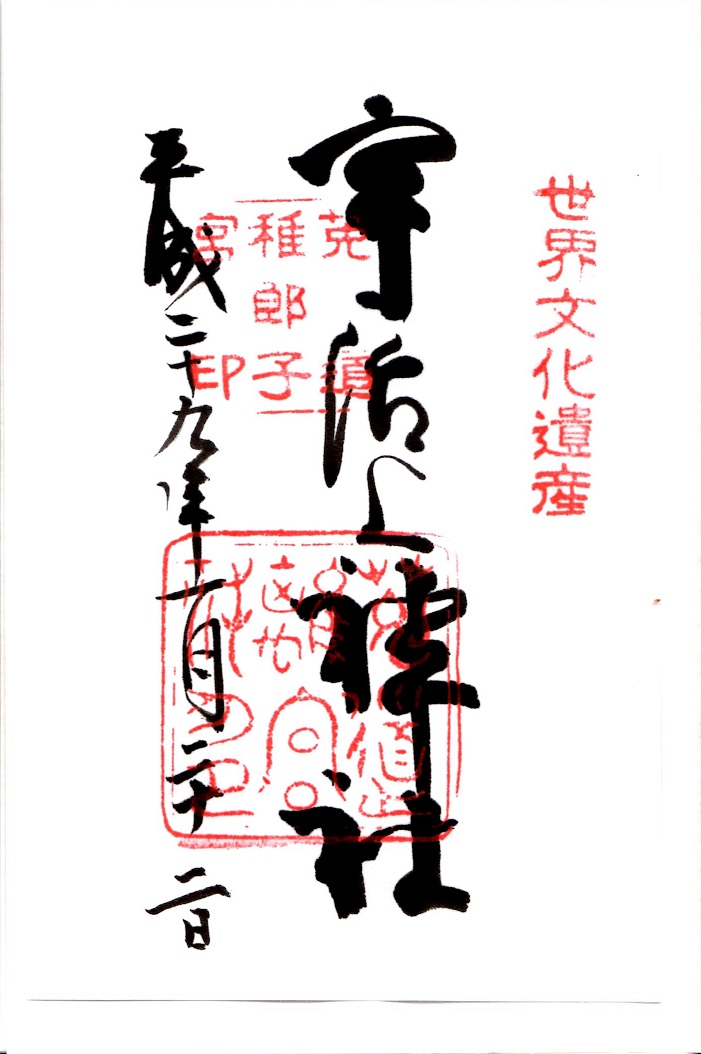 世界文化遺産
宇治上神社
菟道
稚郎子
宮印
平成二十九年二月二十二日